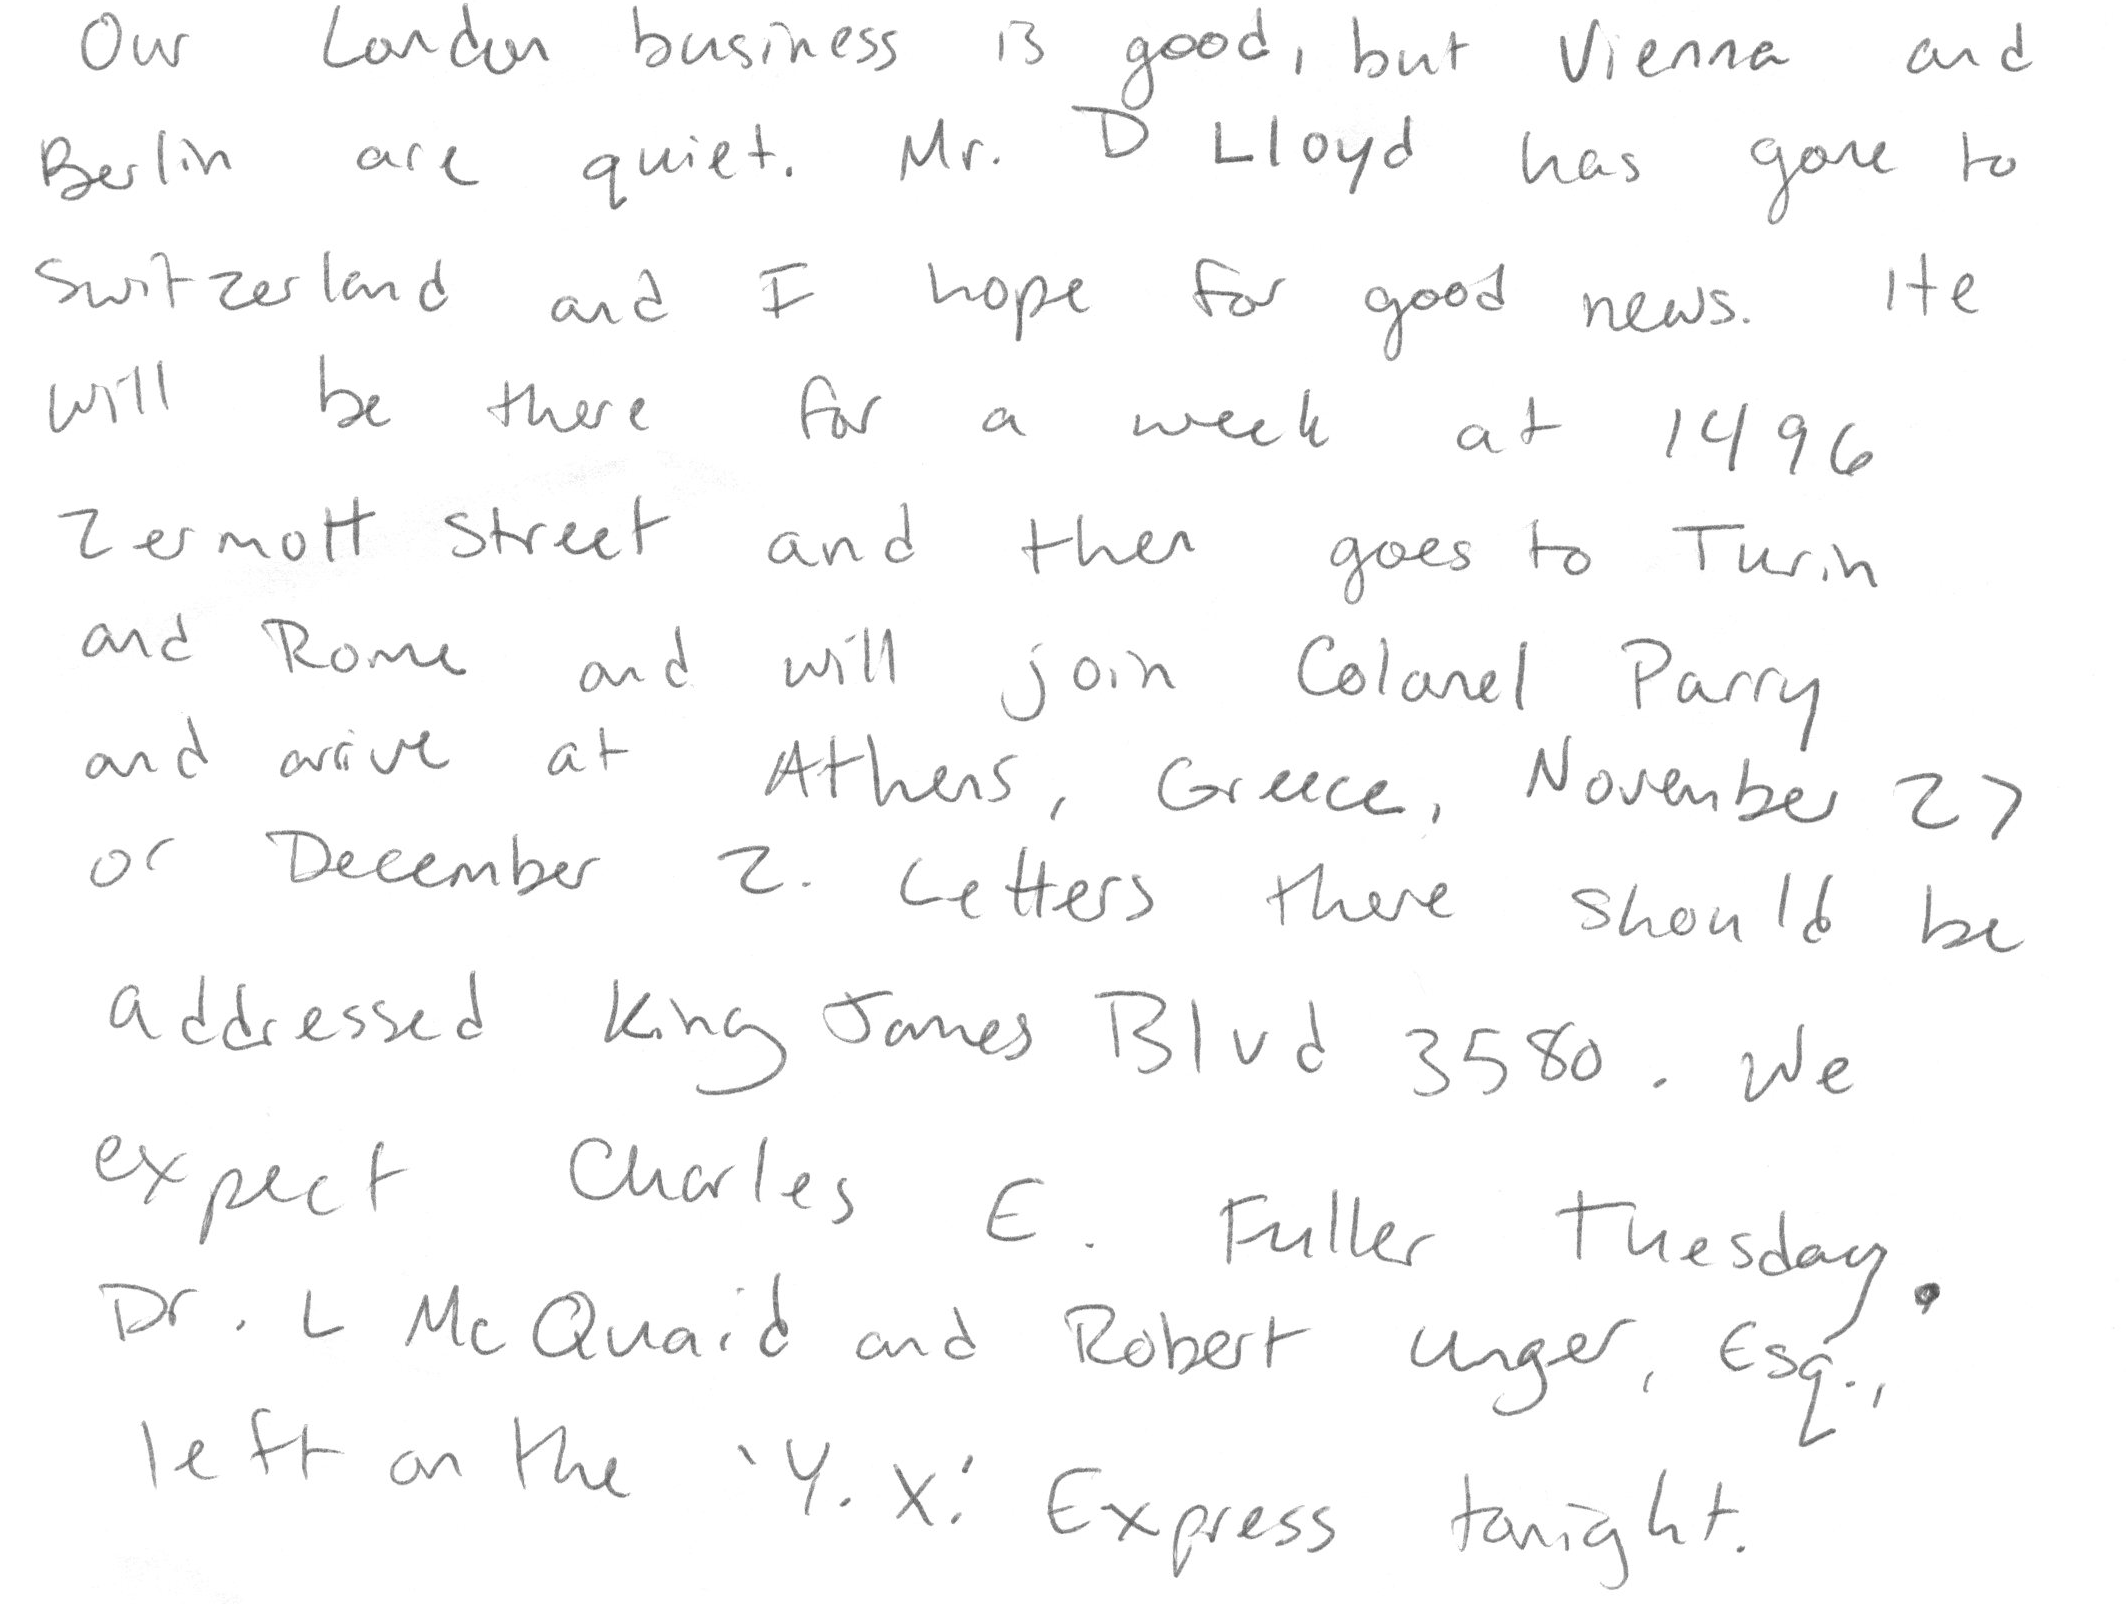 Our London business is good, but Vienna and
Berlin are quiet. Mr. D Lloyd has gone to
Switzerland and I hope for good news. He
will be there for a week at 1496
Zermott Street and then goes to Turin
and Rome and will join Colonel Parry
and arrive at Athens, Greece, November 27
or December 2. Letters there should be
addressed King James Blvd 3580. We
expect Charles E. Fuller Tuesday.
Dr. L McQuaid and Robert Unger, Esq.,
left on the 'Y. X.' Express tonight.